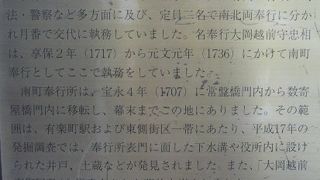 法・警察など多方面に及び、定員二名で南北両奉行に分か
れ月番で交代に執務していました。名奉行大岡越前守忠相
は、享保２年（1717）から元文元年（1736）にかけて南町
奉行としてここで執務をしていました。
南町奉行所は、宝永４年（1707）に常盤橋門内から数寄
屋橋門内に移転し、幕末までこの地にありました。その範
囲は、有楽町駅および東側街区一帯にあたり、平成17年の
発掘調査では、奉行所表門に面した下水溝や役所内に設け
られた井戸、土蔵などが発見されました。また、「大岡越前